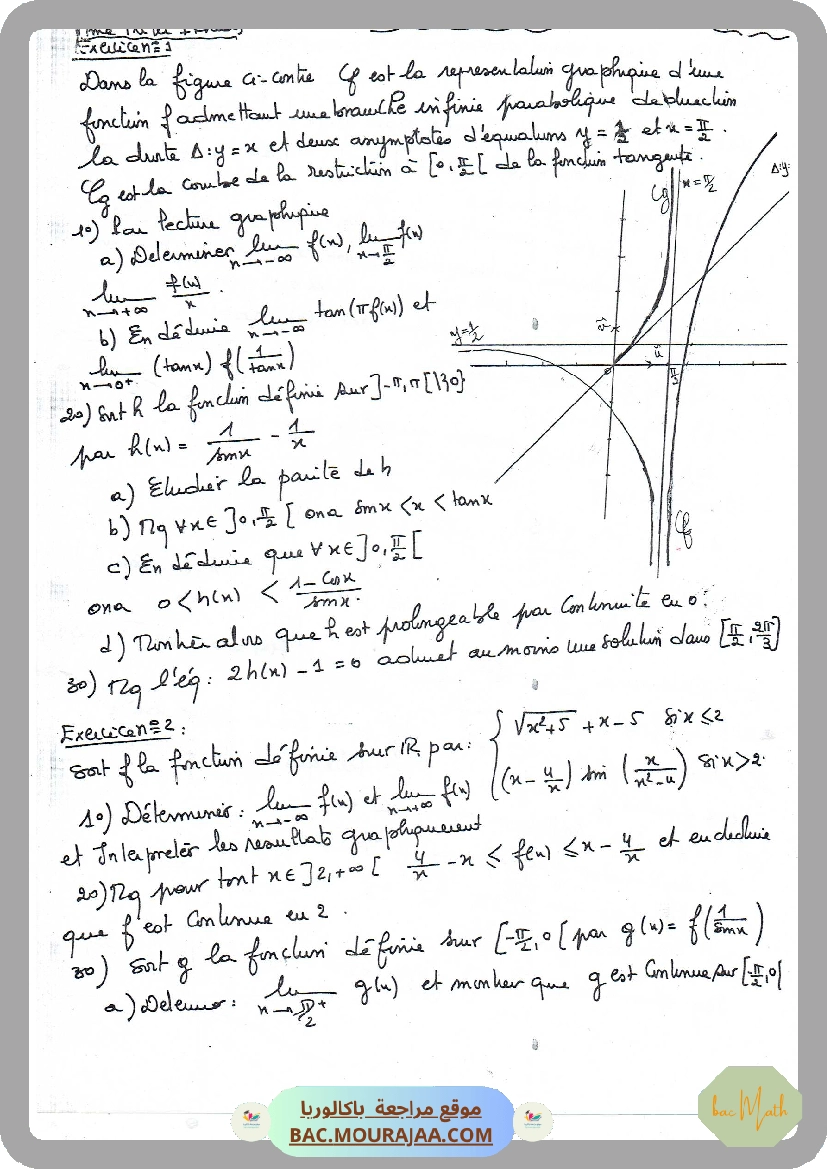 Exercice n=1
Dans la figure ci-contre Cf est la représentation graphique d'une
fonction f admettant une branche infinie parabolique de direction
la droite Δ: y = x et deux asymptotes d'équations y = 1/2 et x = π/2.
Cg est la courbe de la restriction à [0, π/2[ de la fonction tangente.
1°) Par lecture graphique
a) Determiner lim x→-∞ f(x), lim x→π/2 f(x)
lim x→+∞ f(x)/x.
b) En déduire lim x→-∞ tan(πf(x)) et
lim x→0+ (tanx) f(1/tanx)
2°) Soit h la fonction définie sur ]-π,π[\{0}
par h(x) = 1/sinx - 1/x
a) Etudier la parité de h
b) Mq ∀x∈]0,π/2[ ona sinx < x < tanx
c) En déduire que ∀x∈]0,π/2[
ona 0 < h(x) < 1-cosx/sinx.
d) Montrer alors que h est prolongeable par continuité en 0.
3°) Mq l'éq: 2h(x) - 1 = 0 admet au moins une solution dans [π/2, 2π/3]
Cg
x = π/2
Δ: y:
y = 1/2
v
u
o
π/2
Cf
Exercice n=2:
Soit f la fonction définie sur IR par: { √x²+5 + x - 5 si x ≤ 2
(x - 4/x) sin (x/x²-4) si x > 2.
1°) Déterminer: lim x→-∞ f(x) et lim x→+∞ f(x)
et Interpreter les resultats graphiquement
2°) Mq pour tout x∈]2,+∞[ 4/x - x ≤ f(x) ≤ x - 4/x et en deduire
que f est continue en 2.
3°) Soit g la fonction définie sur [-π/2, 0[ par g(x) = f(1/sinx)
a) Determiner: lim x→π/2+ g(x) et montrer que g est continue sur [-π/2, 0[
bac Math
موقع مراجعة باكالوريا
BAC.MOURAJAA.COM